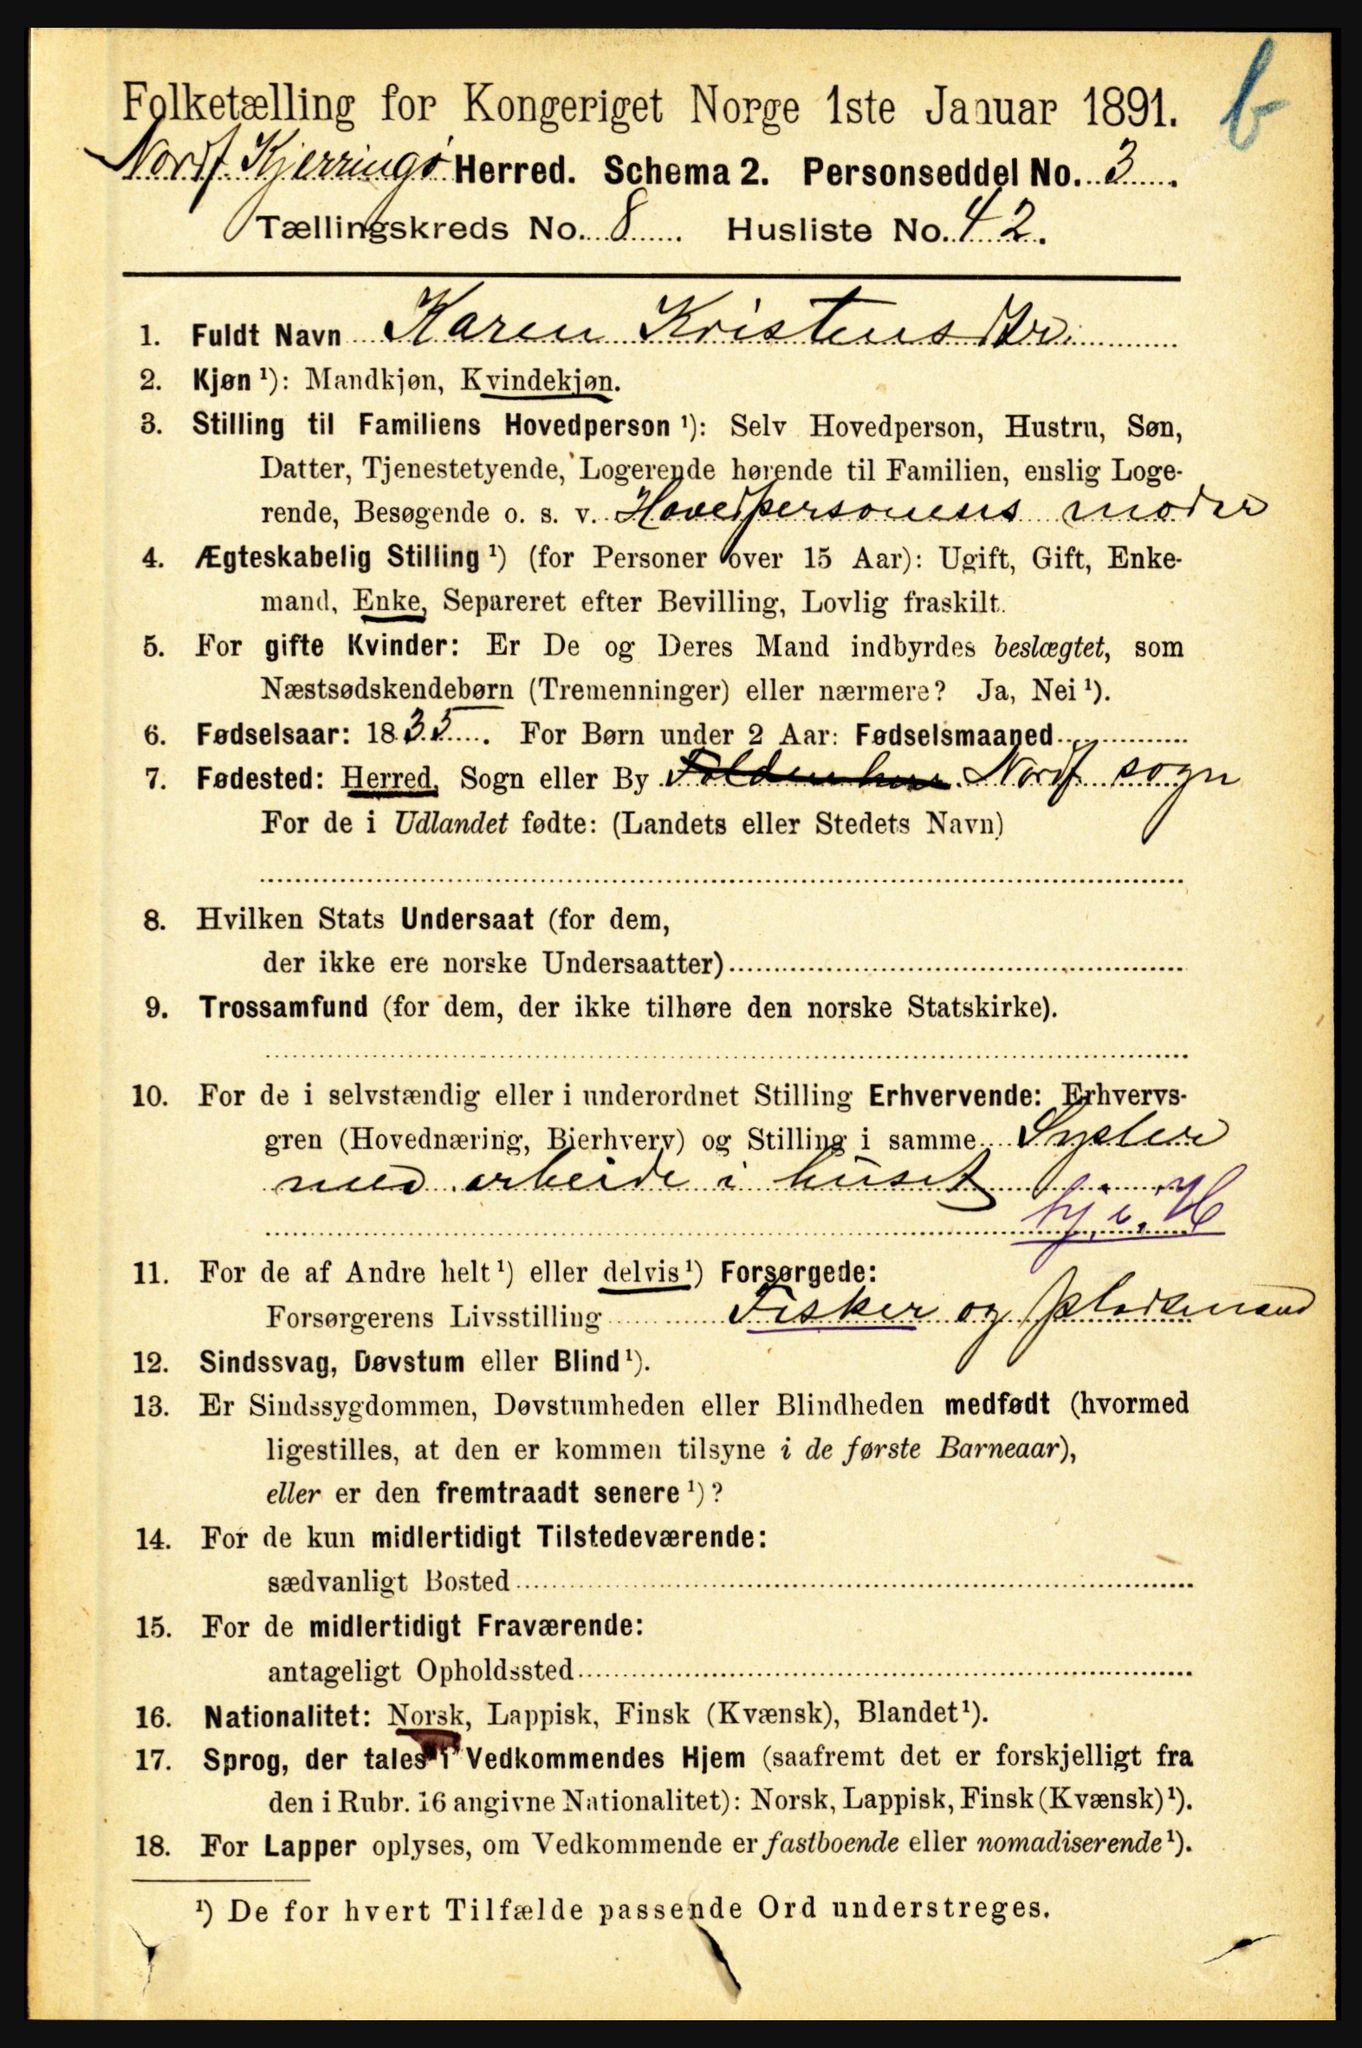 b
Folketælling for Kongeriget Norge 1ste Januar 1891.
Nordf Kjerringø Herred. Schema 2. Personseddel No. 3.
Tællingskreds No. 8. Husliste No. 42.
1. Fuldt Navn Karen Kristensdtr.
2. Kjøn ¹): Mandkjøn, Kvindekjøn.
3. Stilling til Familiens Hovedperson ¹): Selv Hovedperson, Hustru, Søn,
Datter, Tjenestetyende, Logerende hørende til Familien, enslig Loge-
rende, Besøgende o. s. v. Hovedpersonens moder
4. Ægteskabelig Stilling ¹) (for Personer over 15 Aar): Ugift, Gift, Enke-
mand, Enke, Separeret efter Bevilling, Lovlig fraskilt.
5. For gifte Kvinder: Er De og Deres Mand indbyrdes beslægtet, som
Næstsødskendebørn (Tremenninger) eller nærmere? Ja, Nei ¹).
6. Fødselsaar: 1835. For Børn under 2 Aar: Fødselsmaaned
7. Fødested: Herred, Sogn eller By Nordf sogn
For de i Udlandet fødte: (Landets eller Stedets Navn)
8. Hvilken Stats Undersaat (for dem,
der ikke ere norske Undersaatter)
9. Trossamfund (for dem, der ikke tilhøre den norske Statskirke).
10. For de i selvstændig eller i underordnet Stilling Erhvervende: Erhvervs-
gren (Hovednæring, Bierhverv) og Stilling i samme Sysler
med arbeide i huset
tj. i. H
11. For de af Andre helt ¹) eller delvis ¹) Forsørgede:
Forsørgerens Livsstilling Fisker og pladsmand
12. Sindssvag, Døvstum eller Blind ¹).
13. Er Sindssygdommen, Døvstumheden eller Blindheden medfødt (hvormed
ligestilles, at den er kommen tilsyne i de første Barneaar),
eller er den fremtraadt senere ¹)?
14. For de kun midlertidigt Tilstedeværende:
sædvanligt Bosted
15. For de midlertidigt Fraværende:
antageligt Opholdssted
16. Nationalitet: Norsk, Lappisk, Finsk (Kvænsk), Blandet ¹).
17. Sprog, der tales i Vedkommendes Hjem (saafremt det er forskjelligt fra
den i Rubr. 16 angivne Nationalitet): Norsk, Lappisk, Finsk (Kvænsk) ¹).
18. For Lapper oplyses, om Vedkommende er fastboende eller nomadiserende ¹).
¹) De for hvert Tilfælde passende Ord understreges.